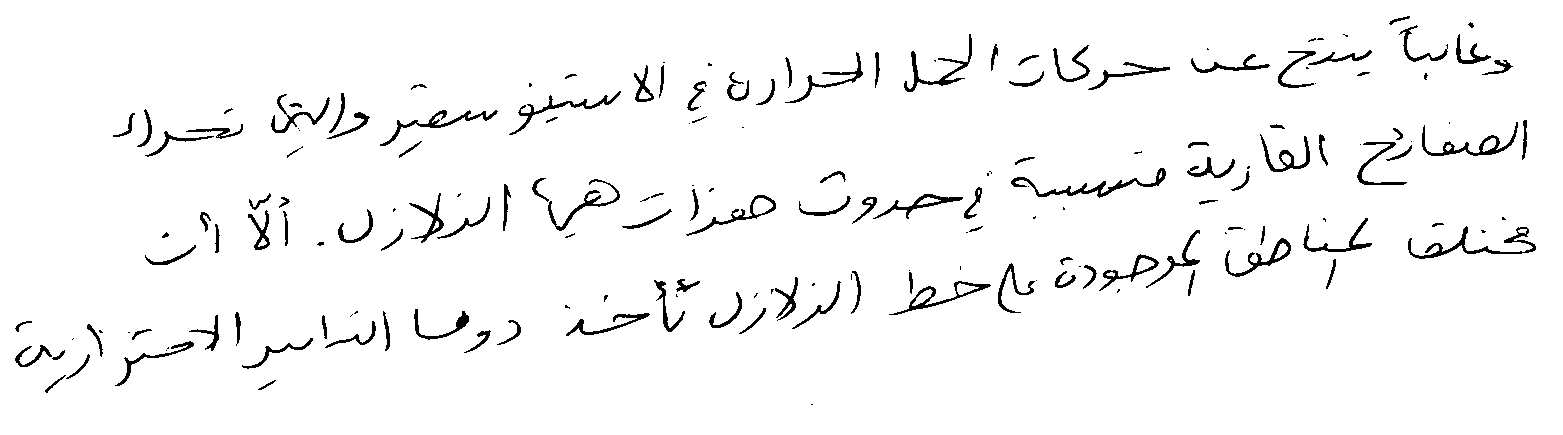 وغالباً ينتج عن حركات الحمل الحرارة في الاستينوسفير والتي تحرك
الصفائح القارية متسببة في حدوث هزات هي الزلازل. ألّا أن
مختلف المناطق الموجودة على خط الزلازل تأخذ دوما التدابير الاحترازية